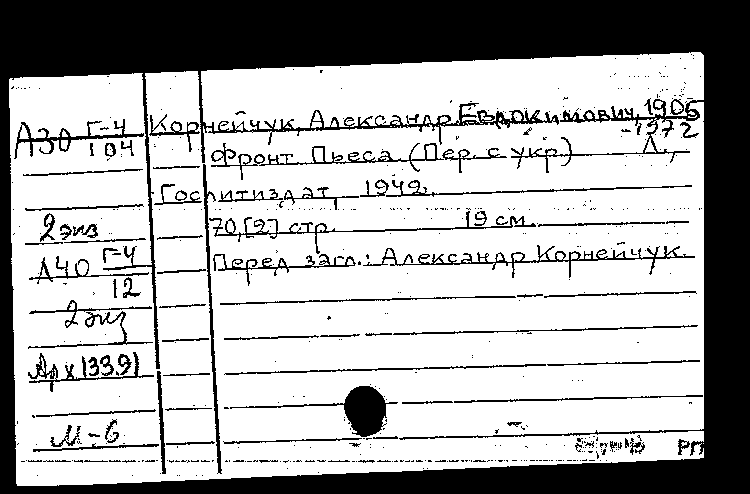 А30 Г-4/104 Корнейчук, Александр Евдокимович, 1905
-1972
Фронт Пьеса (Пер. с укр.) Л.,
Гослитиздат, 1942.
2 экз 70,[2] стр. 19 см.
А40 Г-4/12 Перед загл.: Александр Корнейчук.
2 экз
Арх 13391
М-6
РП